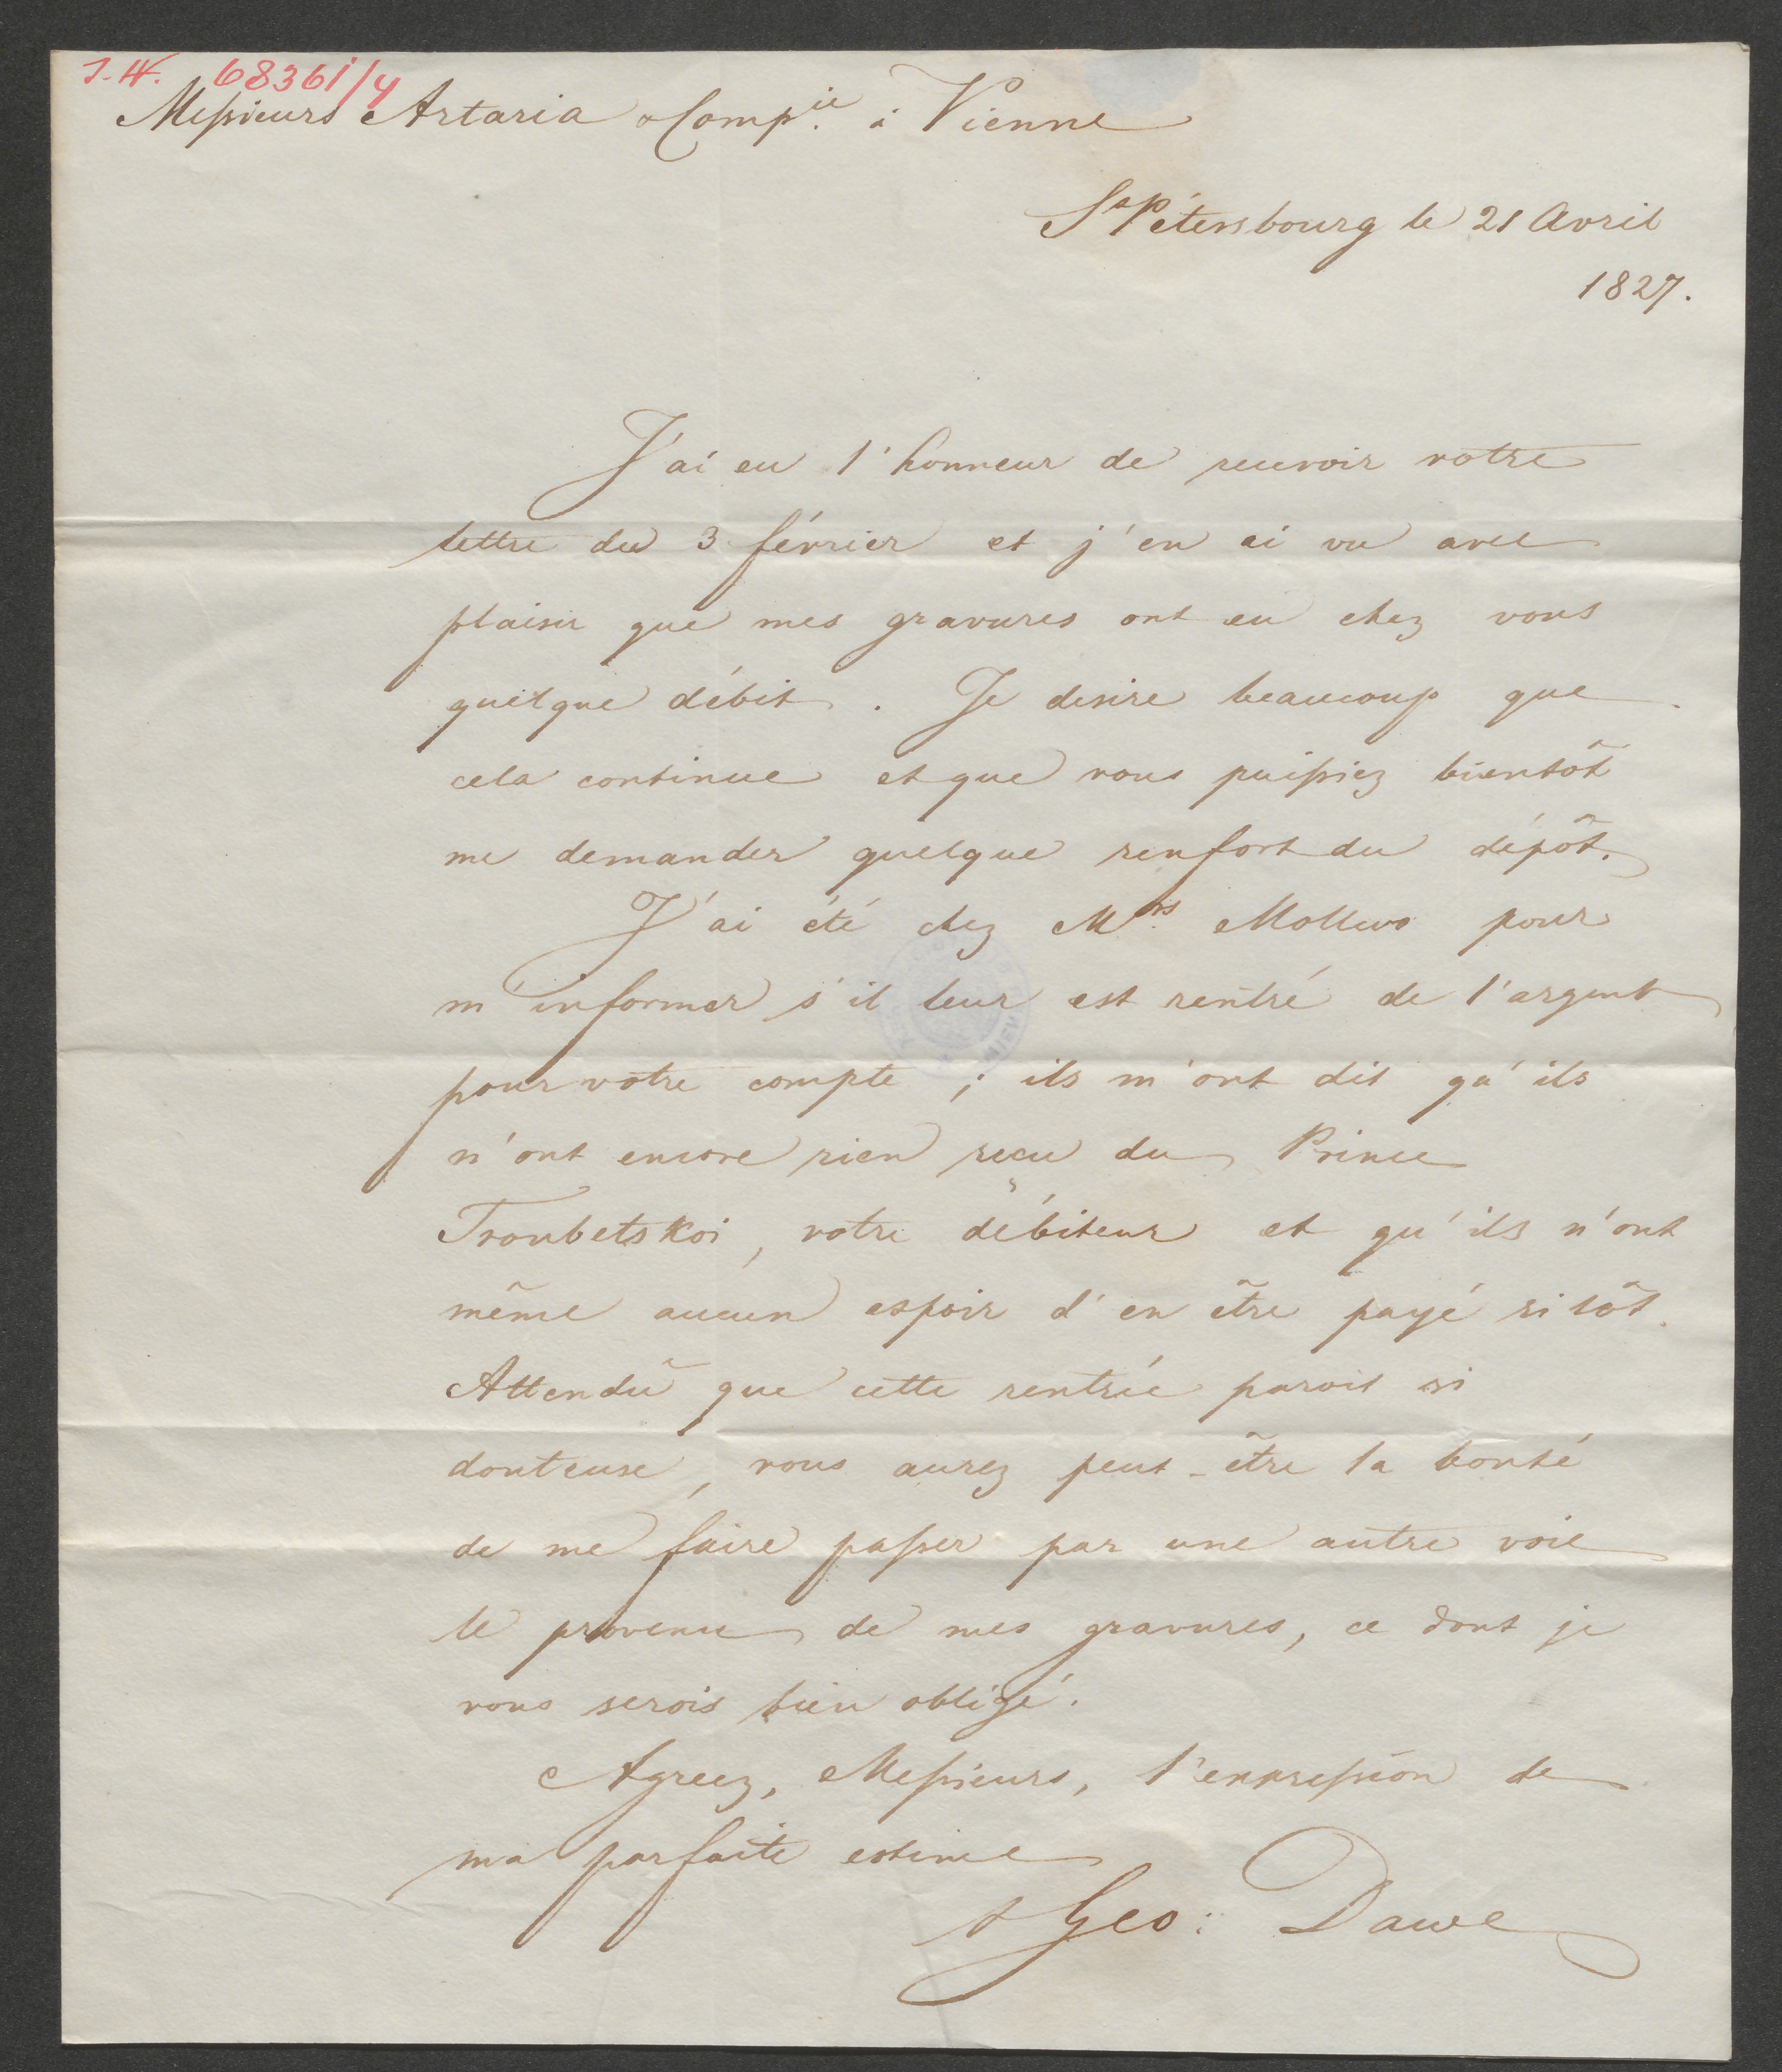 J. N. 68361/4
Messieurs Artaria & Comp.ie à Vienne
St Pétersbourg le 21 Avril
1827.
J'ai eu l'honneur de recevoir votre
lettre du 3 février et j'en ai vu avec
plaisir que mes gravures ont eu chez vous
quelque débit. Je desire beaucoup que
cela continue et que vous puissiez bientôt
me demander quelque renfort du dépôt.
J'ai été chez Mrs. Mollwo pour
m'informer s'il leur est rentré de l'argent
pour votre compte; ils m'ont dit qu'ils
n'ont encore rien reçu du Prince
Troubetskoi, votre débiteur et qu'ils n'ont
même aucun espoir d'en être payé si tôt.
Attendû que cette rentrée paroit si
douteuse, vous aurez peut-être la bonté
de me faire passer par une autre voie
le provenu de mes gravures, ce dont je
vous serois bien obligé.
Agreez, Messieurs, l'expression de
ma parfaite estime
Geo: Dawe